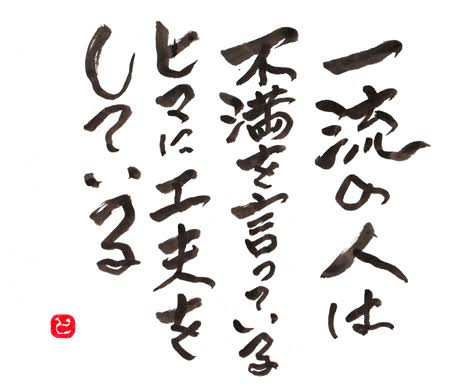 一流の人は
不満を言っている
ヒマに工夫を
している